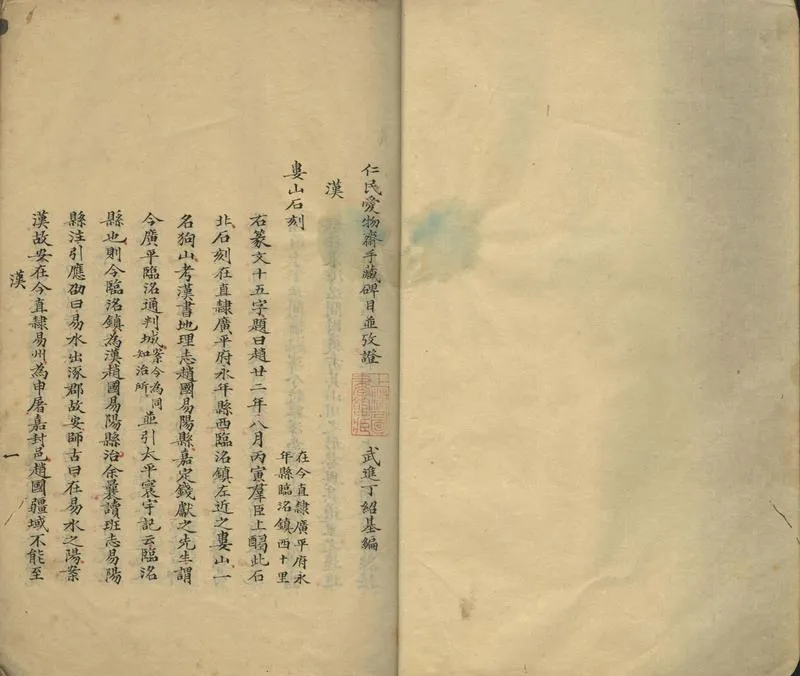 仁民愛物齋手藏碑目並攷證 武進丁紹基編
漢
婁山石刻 在今直隸廣平府永年縣臨洺鎮西十里
右篆文十五字題曰趙廿二年八月丙寅羣臣上醻此石
北石刻在直隸廣平府永年縣西臨洺鎮左近之婁山一
名狗山考漢書地理志趙國易陽縣嘉定錢獻之先生謂
今廣平臨洺通判城案今為同知治所並引太平寰宇記云臨洺
縣也則今臨洺鎮為漢趙國易陽縣治余曩讀班志易陽
縣注引應劭曰易水出涿郡故安師古曰在易水之陽案
漢故安在今直隸易州為申屠嘉封邑趙國疆域不能至
漢 一